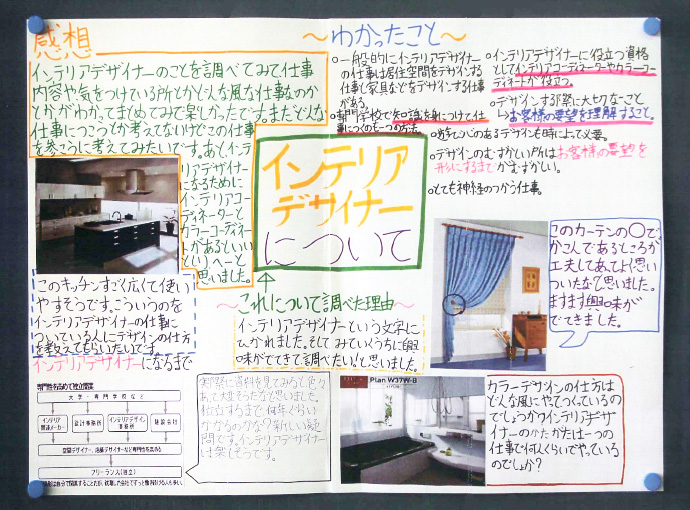 感想
インテリアデザイナーのことを調べてみて仕事
内容や気をつけている所とかどんな風な仕事なのか
とかがわかってまとめてみて楽しかったです。まだどんな
仕事につこうとか考えてないけどこの仕事
を参こうに考えてみたいです。あとインテ
リアデザイナー
になるために
インテリアコー
ディネーターと
カラーコーディネー
トがあるといい
へーと
思いました。
〜わかったこと〜
○一般的にインテリアデザイナー
の仕事は居住空間をデザインする
仕事と家具などをデザインする仕事
がある。
○専門学校で知識を身につけて仕
事につくのも一つの方法。
○インテリアデザイナーに役立つ資格
としてインテリアコーディネーターやカラーコー
ディネートが役立つ。
○デザインする際に大切なこと
→お客様の要望を理解すること。
○遊び心のあるデザインも時によって必要。
○デザインのむずかしい所はお客様の要望を
形にするまでがむずかしい。
○とても神経のつかう仕事。
インテリア
デザイナー
について
このキッチンすごく広くて使い
やすそうです。こういうのを
インテリアデザイナーの仕事に
ついている人にデザインの仕方
を教えてもらいたいです。
〜これについて調べた理由〜
インテリアデザイナーという文字に
ひかれました。そしてみていくうちに興
味がでてきて調べたいと思いました。
このカーテンの○で
かこんであるところが
工夫してあってよく思い
ついたなと思いました。
ますます興味が
でてきました。
インテリアデザイナーになるまで
専門性を高めて独立開業
大学・専門学校など
インテリア
関連メーカー
設計事務所
インテリアデザイン
事務所
建設会社
空間デザイナー、店舗デザイナーなど専門性を高める
フリーランス(独立)
実際に資料を見てみると色々
あって大変そうだなと思いました。
役立するまで何年くらい
かかるのかな?新しい疑
問です。インテリアデザイナー
は楽しそうです。
Plan W37W-B
カラーデザインの仕方は
どんな風にやってつくっているの
でしょうか?インテリアデザイ
ナーのかたがたは一つの
仕事で何人くらいでやっている
のでしょか?